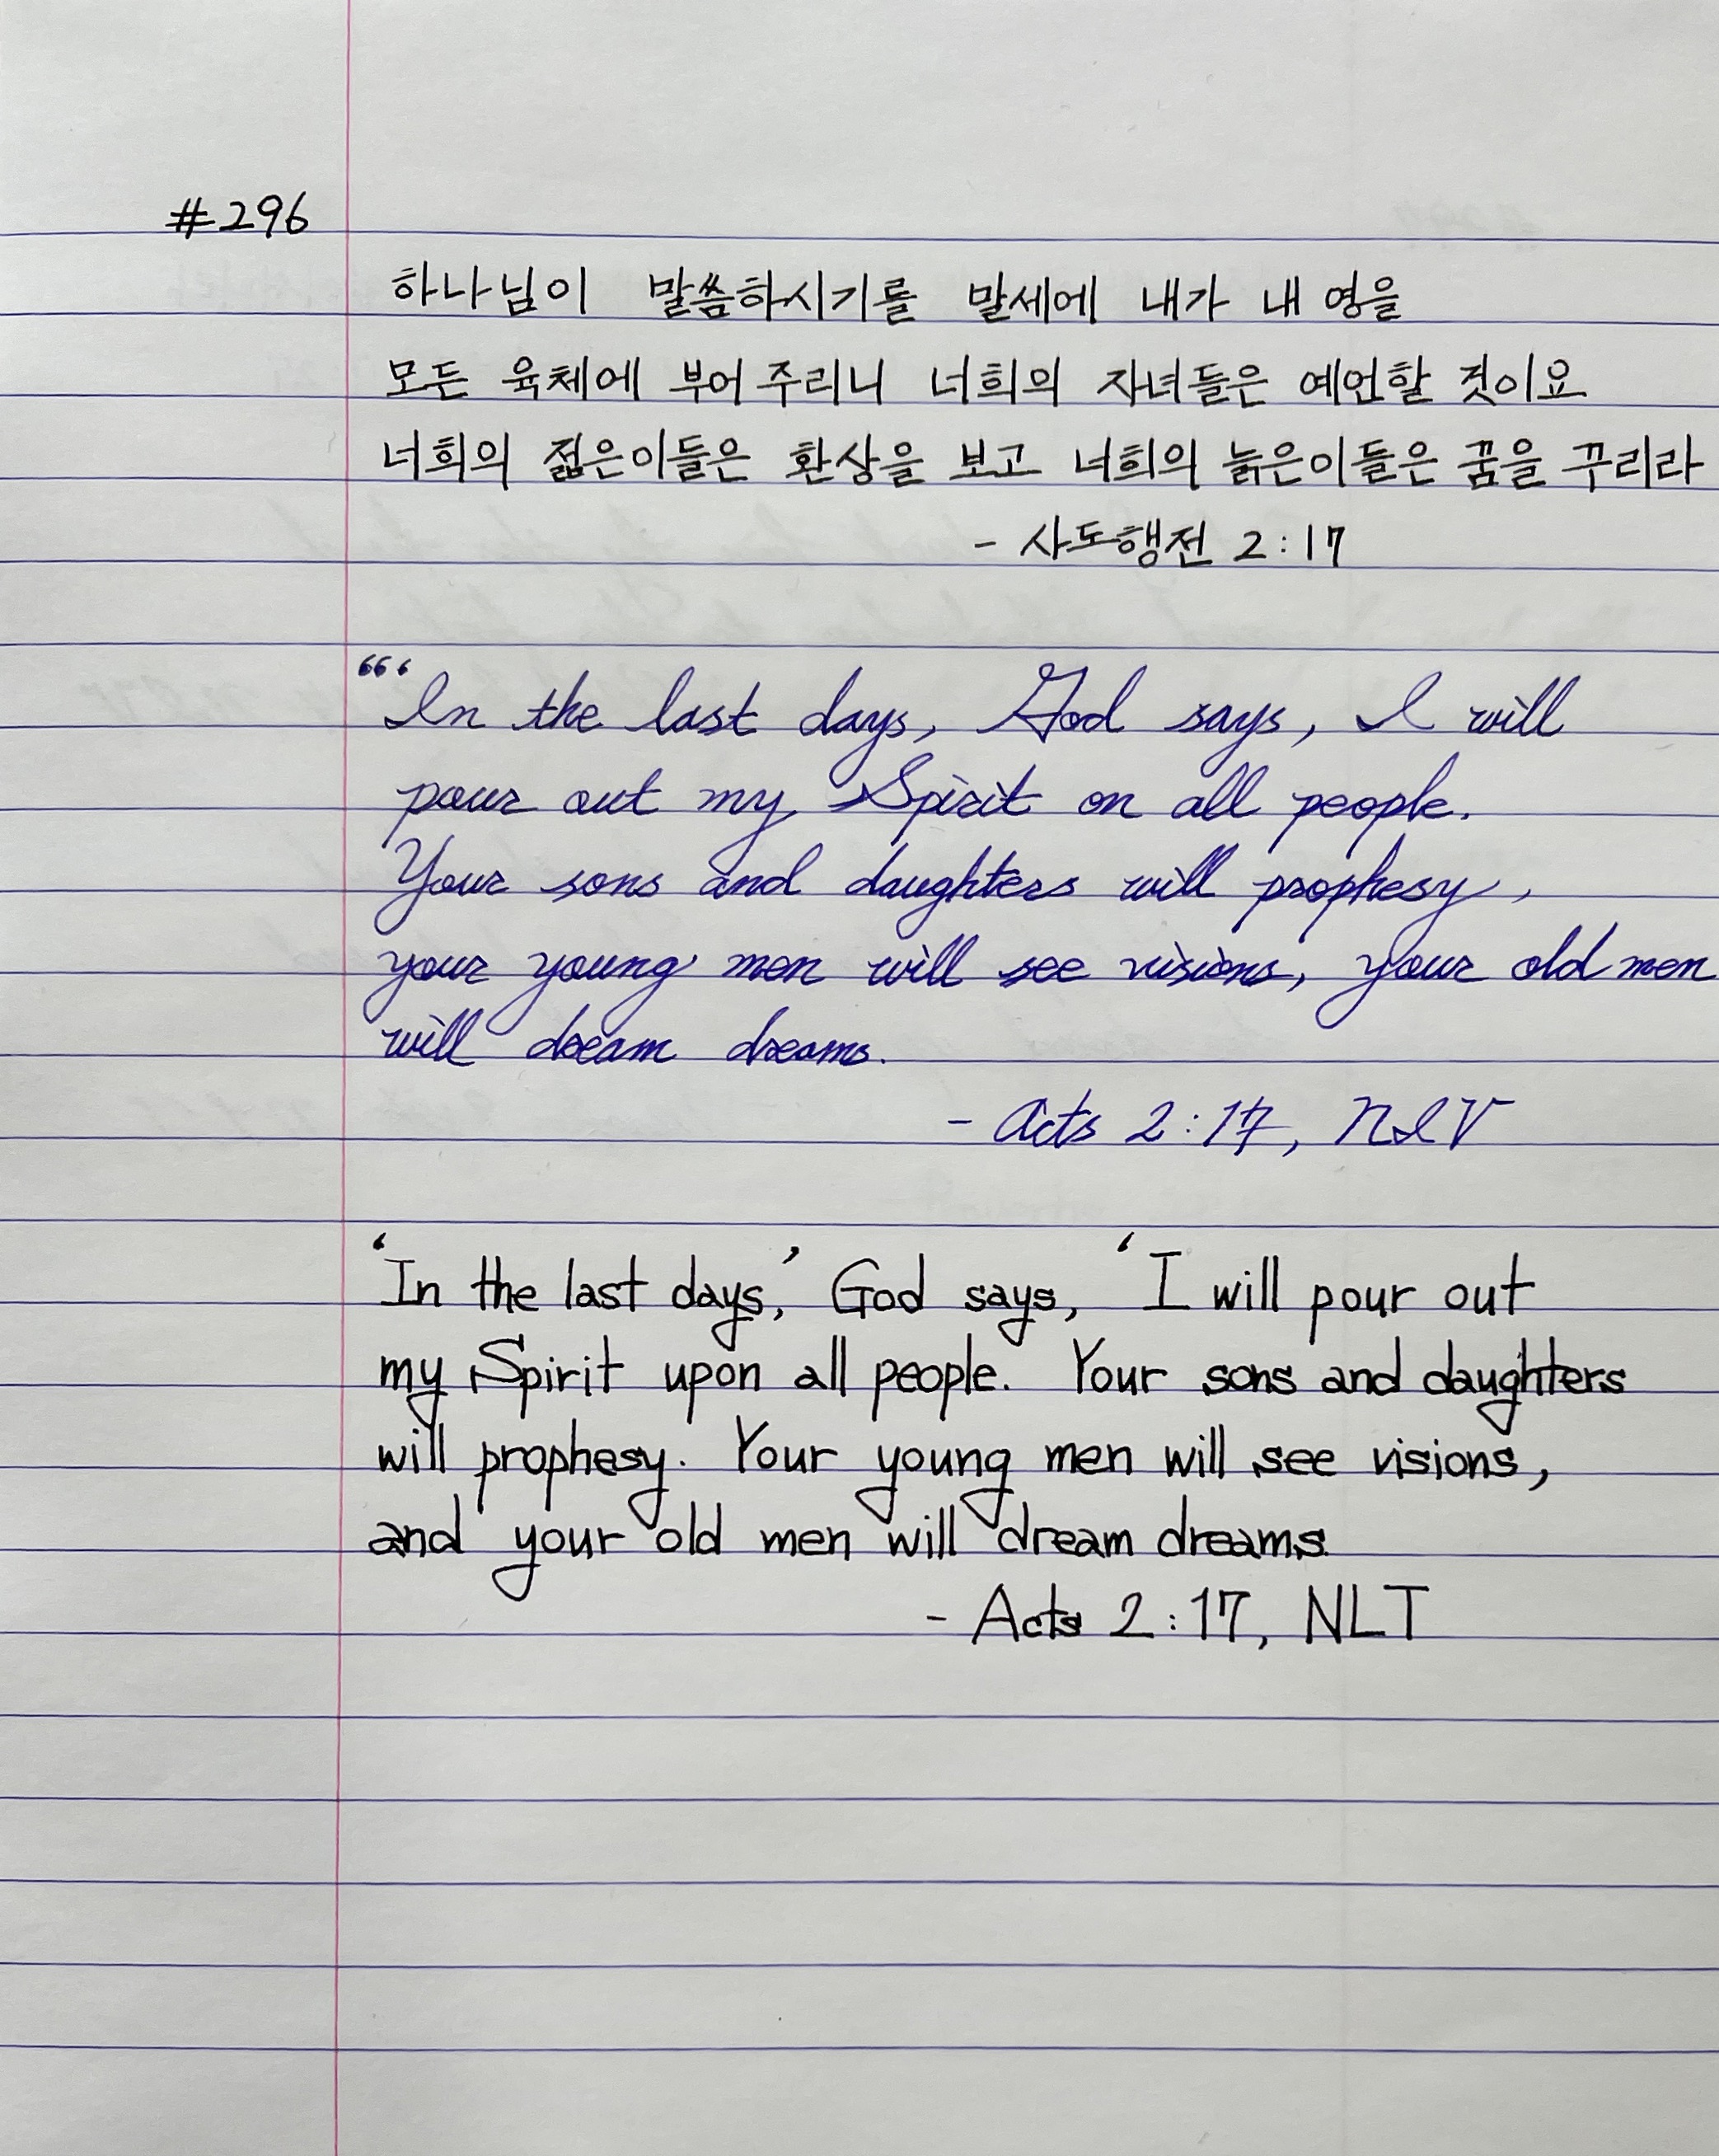 #296
하나님이 말씀하시기를 말세에 내가 내 영을
모든 육체에 부어 주리니 너희의 자녀들은 예언할 것이요
너희의 젊은이들은 환상을 보고 너희의 늙은이들은 꿈을 꾸리라
- 사도행전 2:17
“‘In the last days, God says, I will
pour out my Spirit on all people.
Your sons and daughters will prophesy,
your young men will see visions, your old men
will dream dreams.
- Acts 2:17, NIV
‘In the last days,’ God says, ‘I will pour out
my Spirit upon all people. Your sons and daughters
will prophesy. Your young men will see visions,
and your old men will dream dreams.
- Acts 2:17, NLT